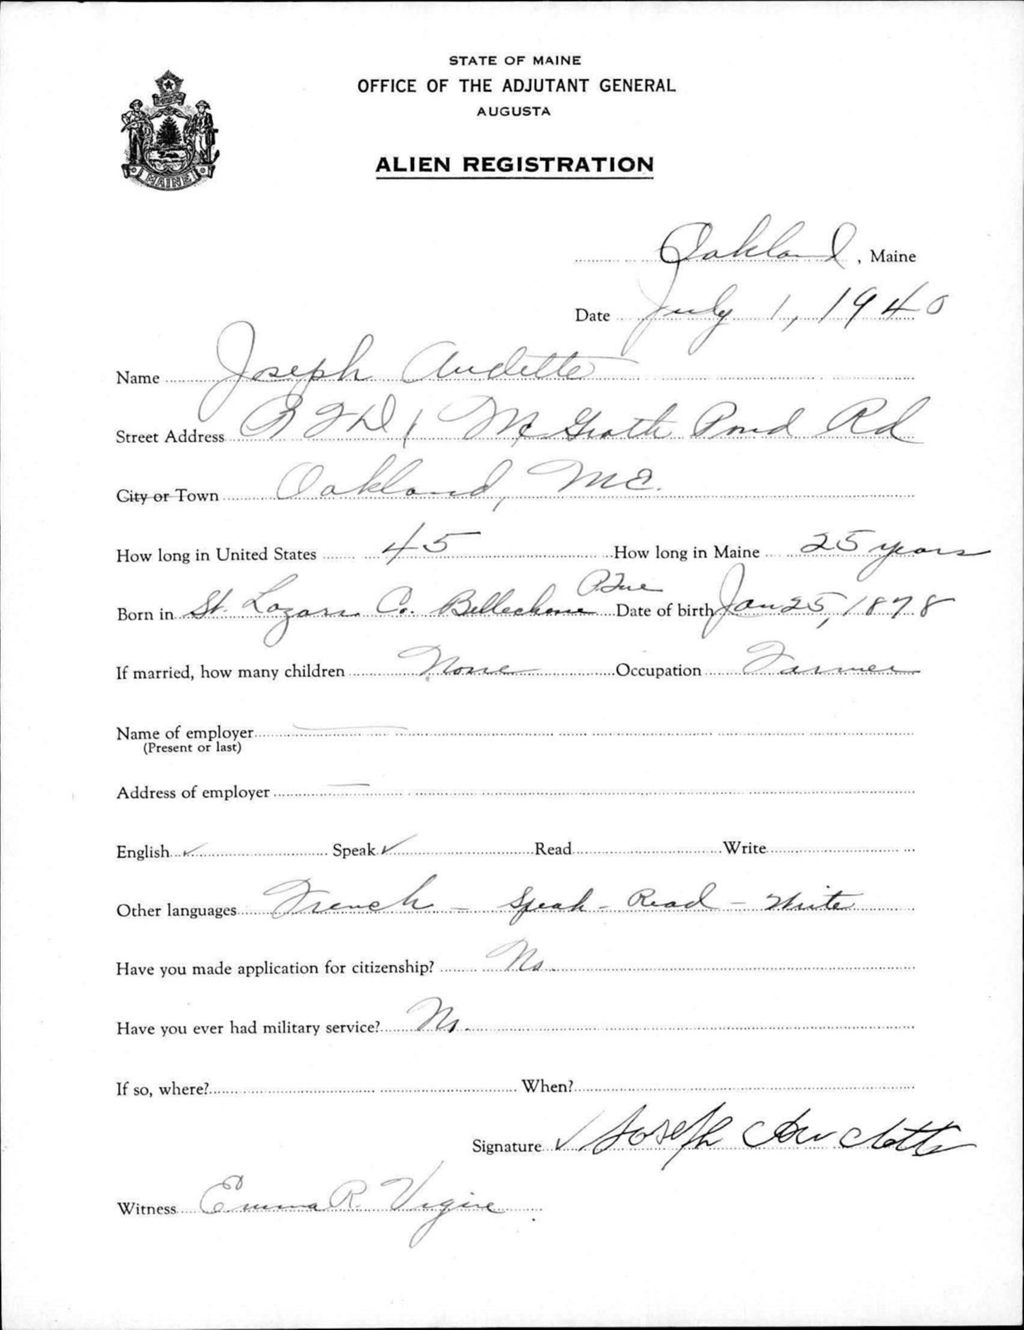 STATE OF MAINE
OFFICE OF THE ADJUTANT GENERAL
AUGUSTA
MAINE
ALIEN REGISTRATION
Oakland, Maine
Date July 1, 1940
Name Joseph Audette
Street Address RFD 1 McGrath Pond Rd
City or Town Oakland, ME.
How long in United States 45 How long in Maine 25 years
Born in St. Lazare Co. Bellechasse P Que Date of birth Jan 25, 1878
If married, how many children None Occupation Farmer
Name of employer
(Present or last)
Address of employer
English ✓ Speak ✓ Read Write
Other languages French - Speak - Read - Write
Have you made application for citizenship? No.
Have you ever had military service? No.
If so, where? When?
Signature ✓ Joseph Audette
Witness Emma R.